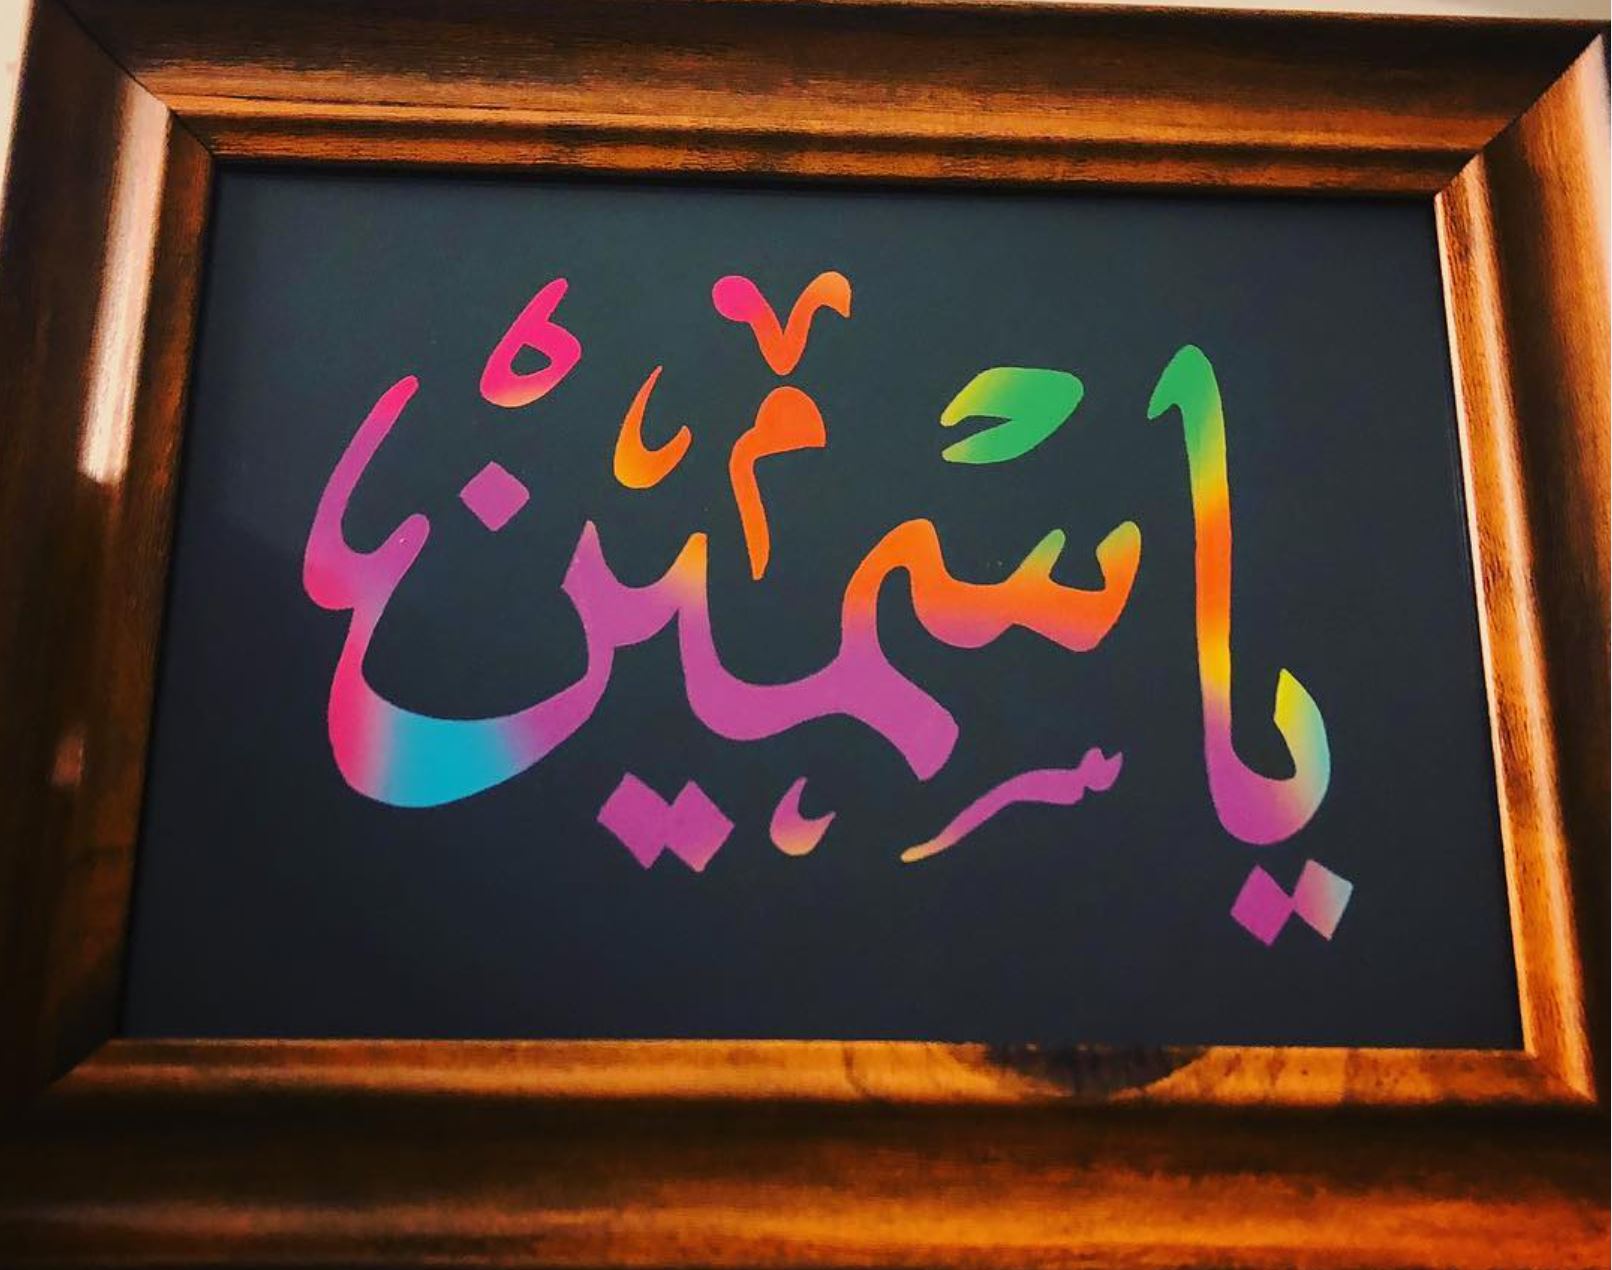 ياسمين